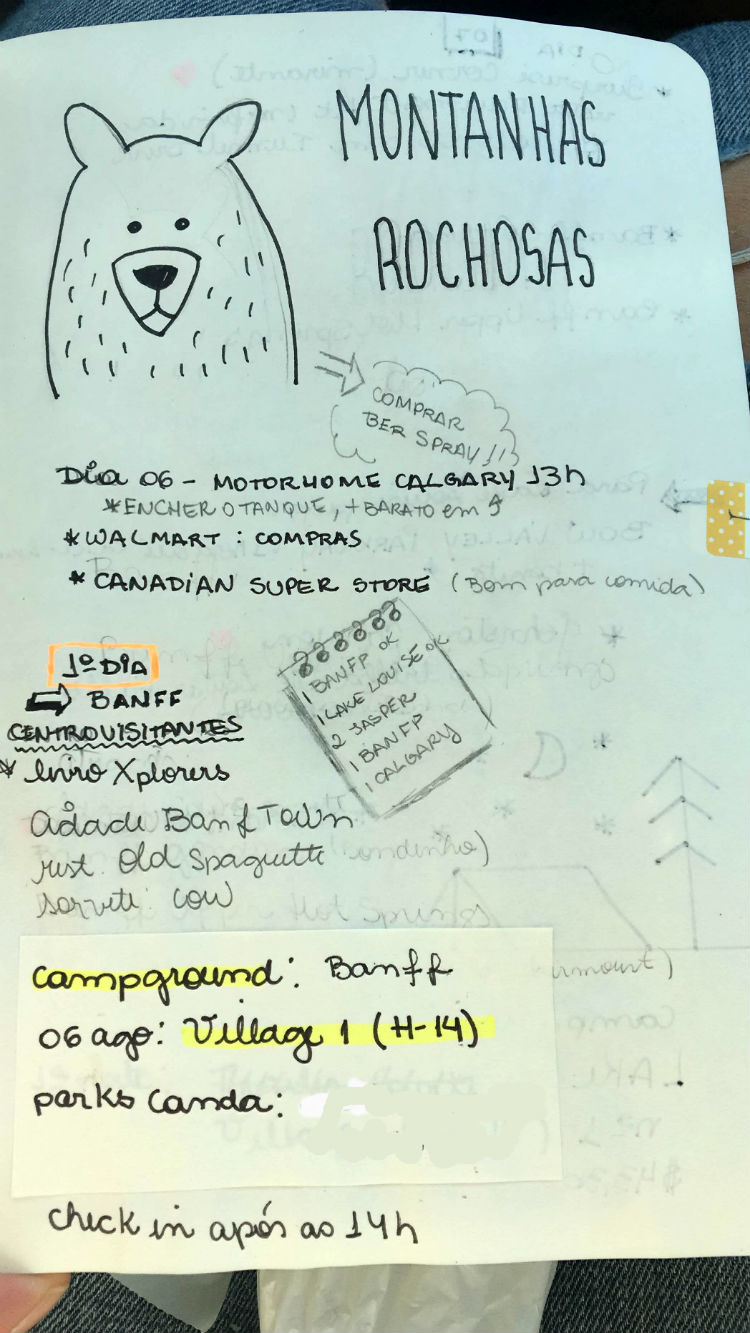 MONTANHAS
ROCHOSAS
COMPRAR
BER SPRAY!!
Dia 06 - MOTORHOME CALGARY 13h
*ENCHER O TANQUE, + BARATO em
*WALMART : COMPRAS
* CANADIAN SUPER STORE (Bom para comida)
1º DIA
BANFF
CENTRO VISITANTES
* livro Xplorers
cidade Banf Town
rest. Old Spaguetti
sorvete: COW
1 BANFP OK
1 LAKE LOUISE OK
2 JASPER
1 BANFP
1 CALGARY
campground: Banff
06 ago: Village 1 (H-14)
parks Canda:
check in após as 14h